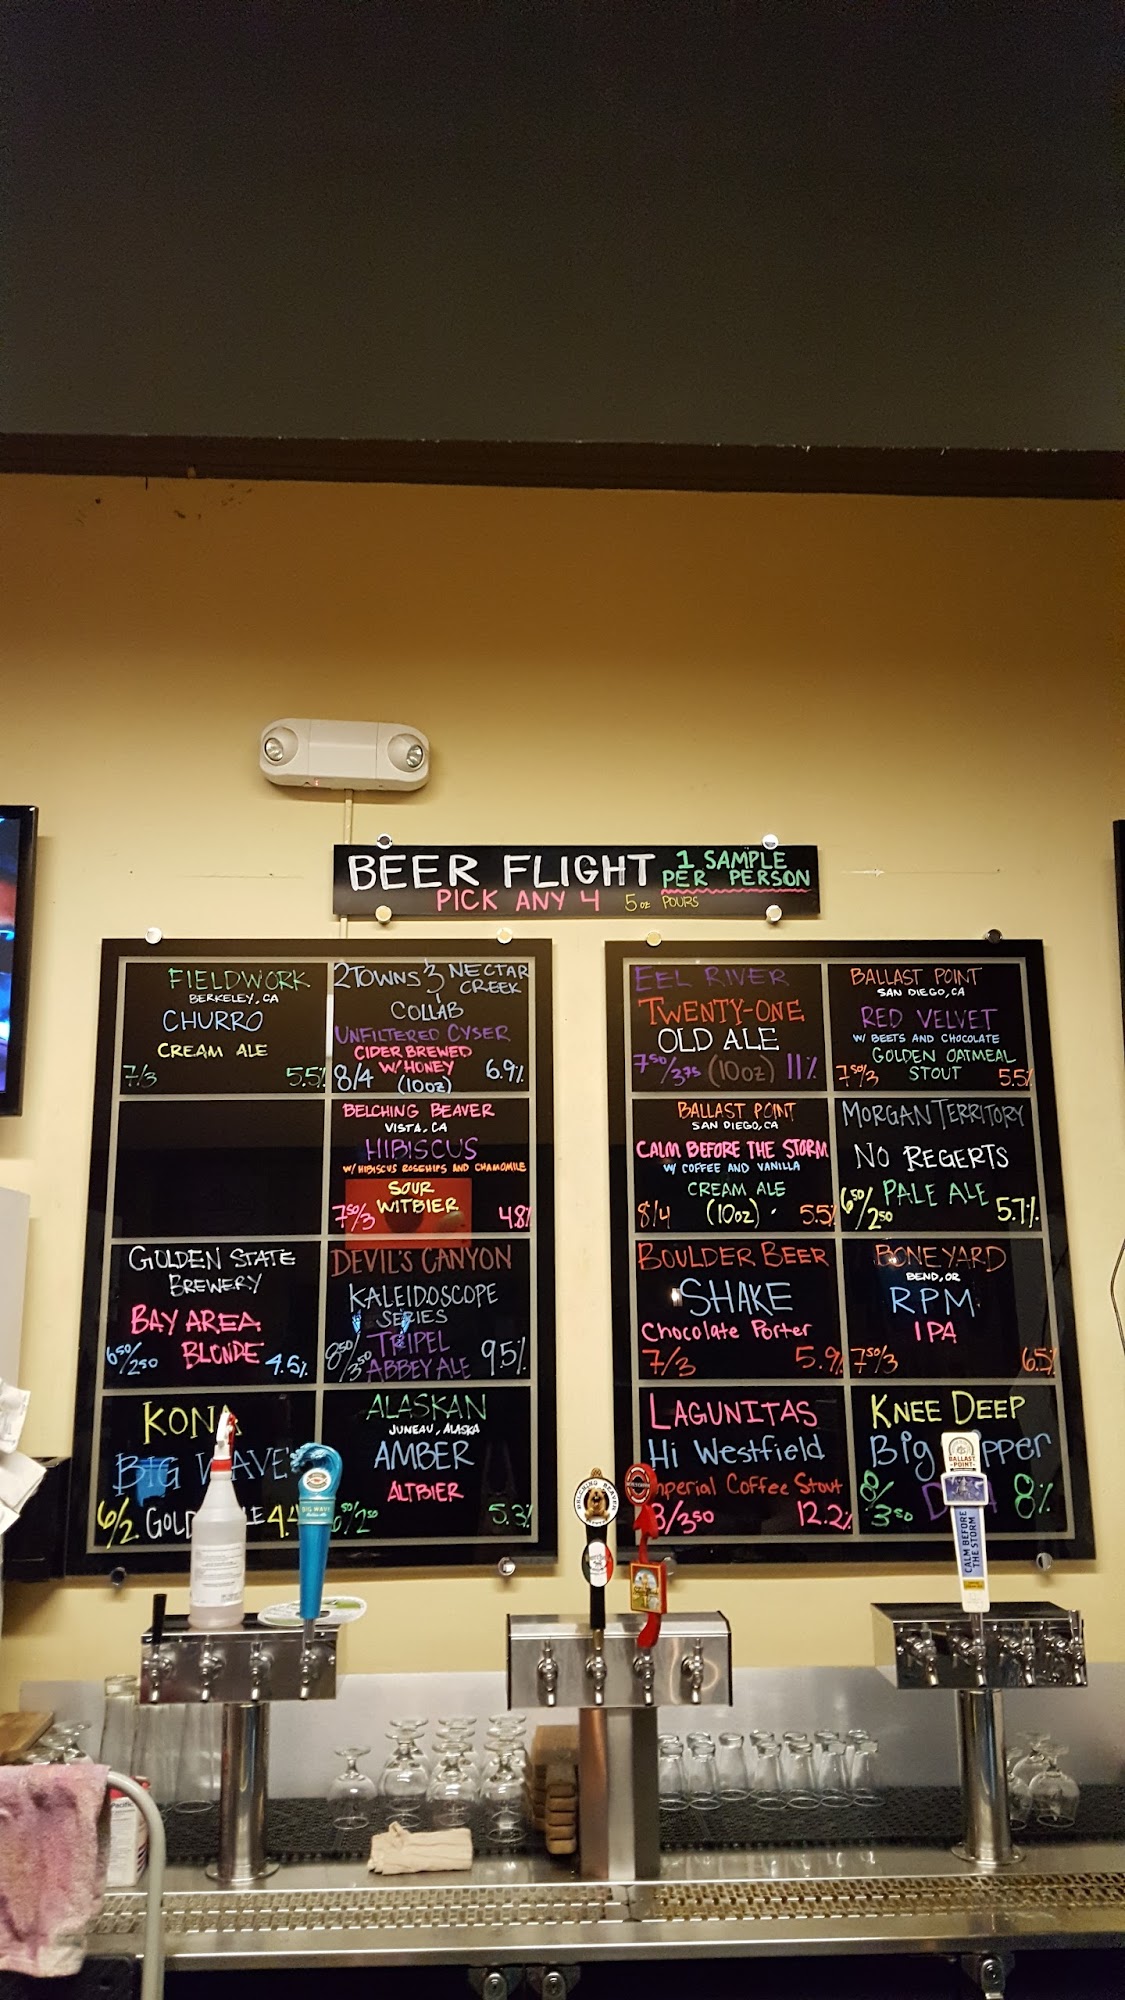 BEER FLIGHT 1 SAMPLE
PER PERSON
PICK ANY 4 5oz POURS
FIELDWORK
BERKELEY, CA
CHURRO
CREAM ALE
7/3 5.5%
2 TOWNS & NECTAR
CREEK
COLLAB
UNFILTERED CYSER
CIDER BREWED
W/ HONEY
8/4 (10oz) 6.9%
BELCHING BEAVER
VISTA, CA
HIBISCUS
W/ HIBISCUS ROSEHIPS AND CHAMOMILE
SOUR
WITBIER
750/3 4.8%
GOLDEN STATE
BREWERY
BAY AREA
BLONDE
650/250 4.5%
DEVIL'S CANYON
KALEIDOSCOPE
SERIES
TRIPEL
ABBEY ALE
850/350 9.5%
KONA
BIG WAVE
6/2
ALASKAN
JUNEAU, ALASKA
AMBER
ALTBIER
5.3%
EEL RIVER
TWENTY-ONE
OLD ALE
750/375 (10oz) 11%
BALLAST POINT
SAN DIEGO, CA
RED VELVET
W/ BEETS AND CHOCOLATE
GOLDEN OATMEAL
STOUT
750/3 5.5%
BALLAST POINT
SAN DIEGO, CA
CALM BEFORE THE STORM
W/ COFFEE AND VANILLA
CREAM ALE
8/4 (10oz) 5.5%
MORGAN TERRITORY
NO REGERTS
PALE ALE
650/250 5.7%
BOULDER BEER
SHAKE
Chocolate Porter
7/3 5.9%
BONEYARD
BEND, OR
RPM
IPA
750/3 6.5%
LAGUNITAS
Hi Westfield
Imperial Coffee Stout
8/350 12.2%
KNEE DEEP
Big
8/350 8%
BIG WAVE
BELCHING BEAVER
BALLAST
POINT
CALM BEFORE
THE STORM